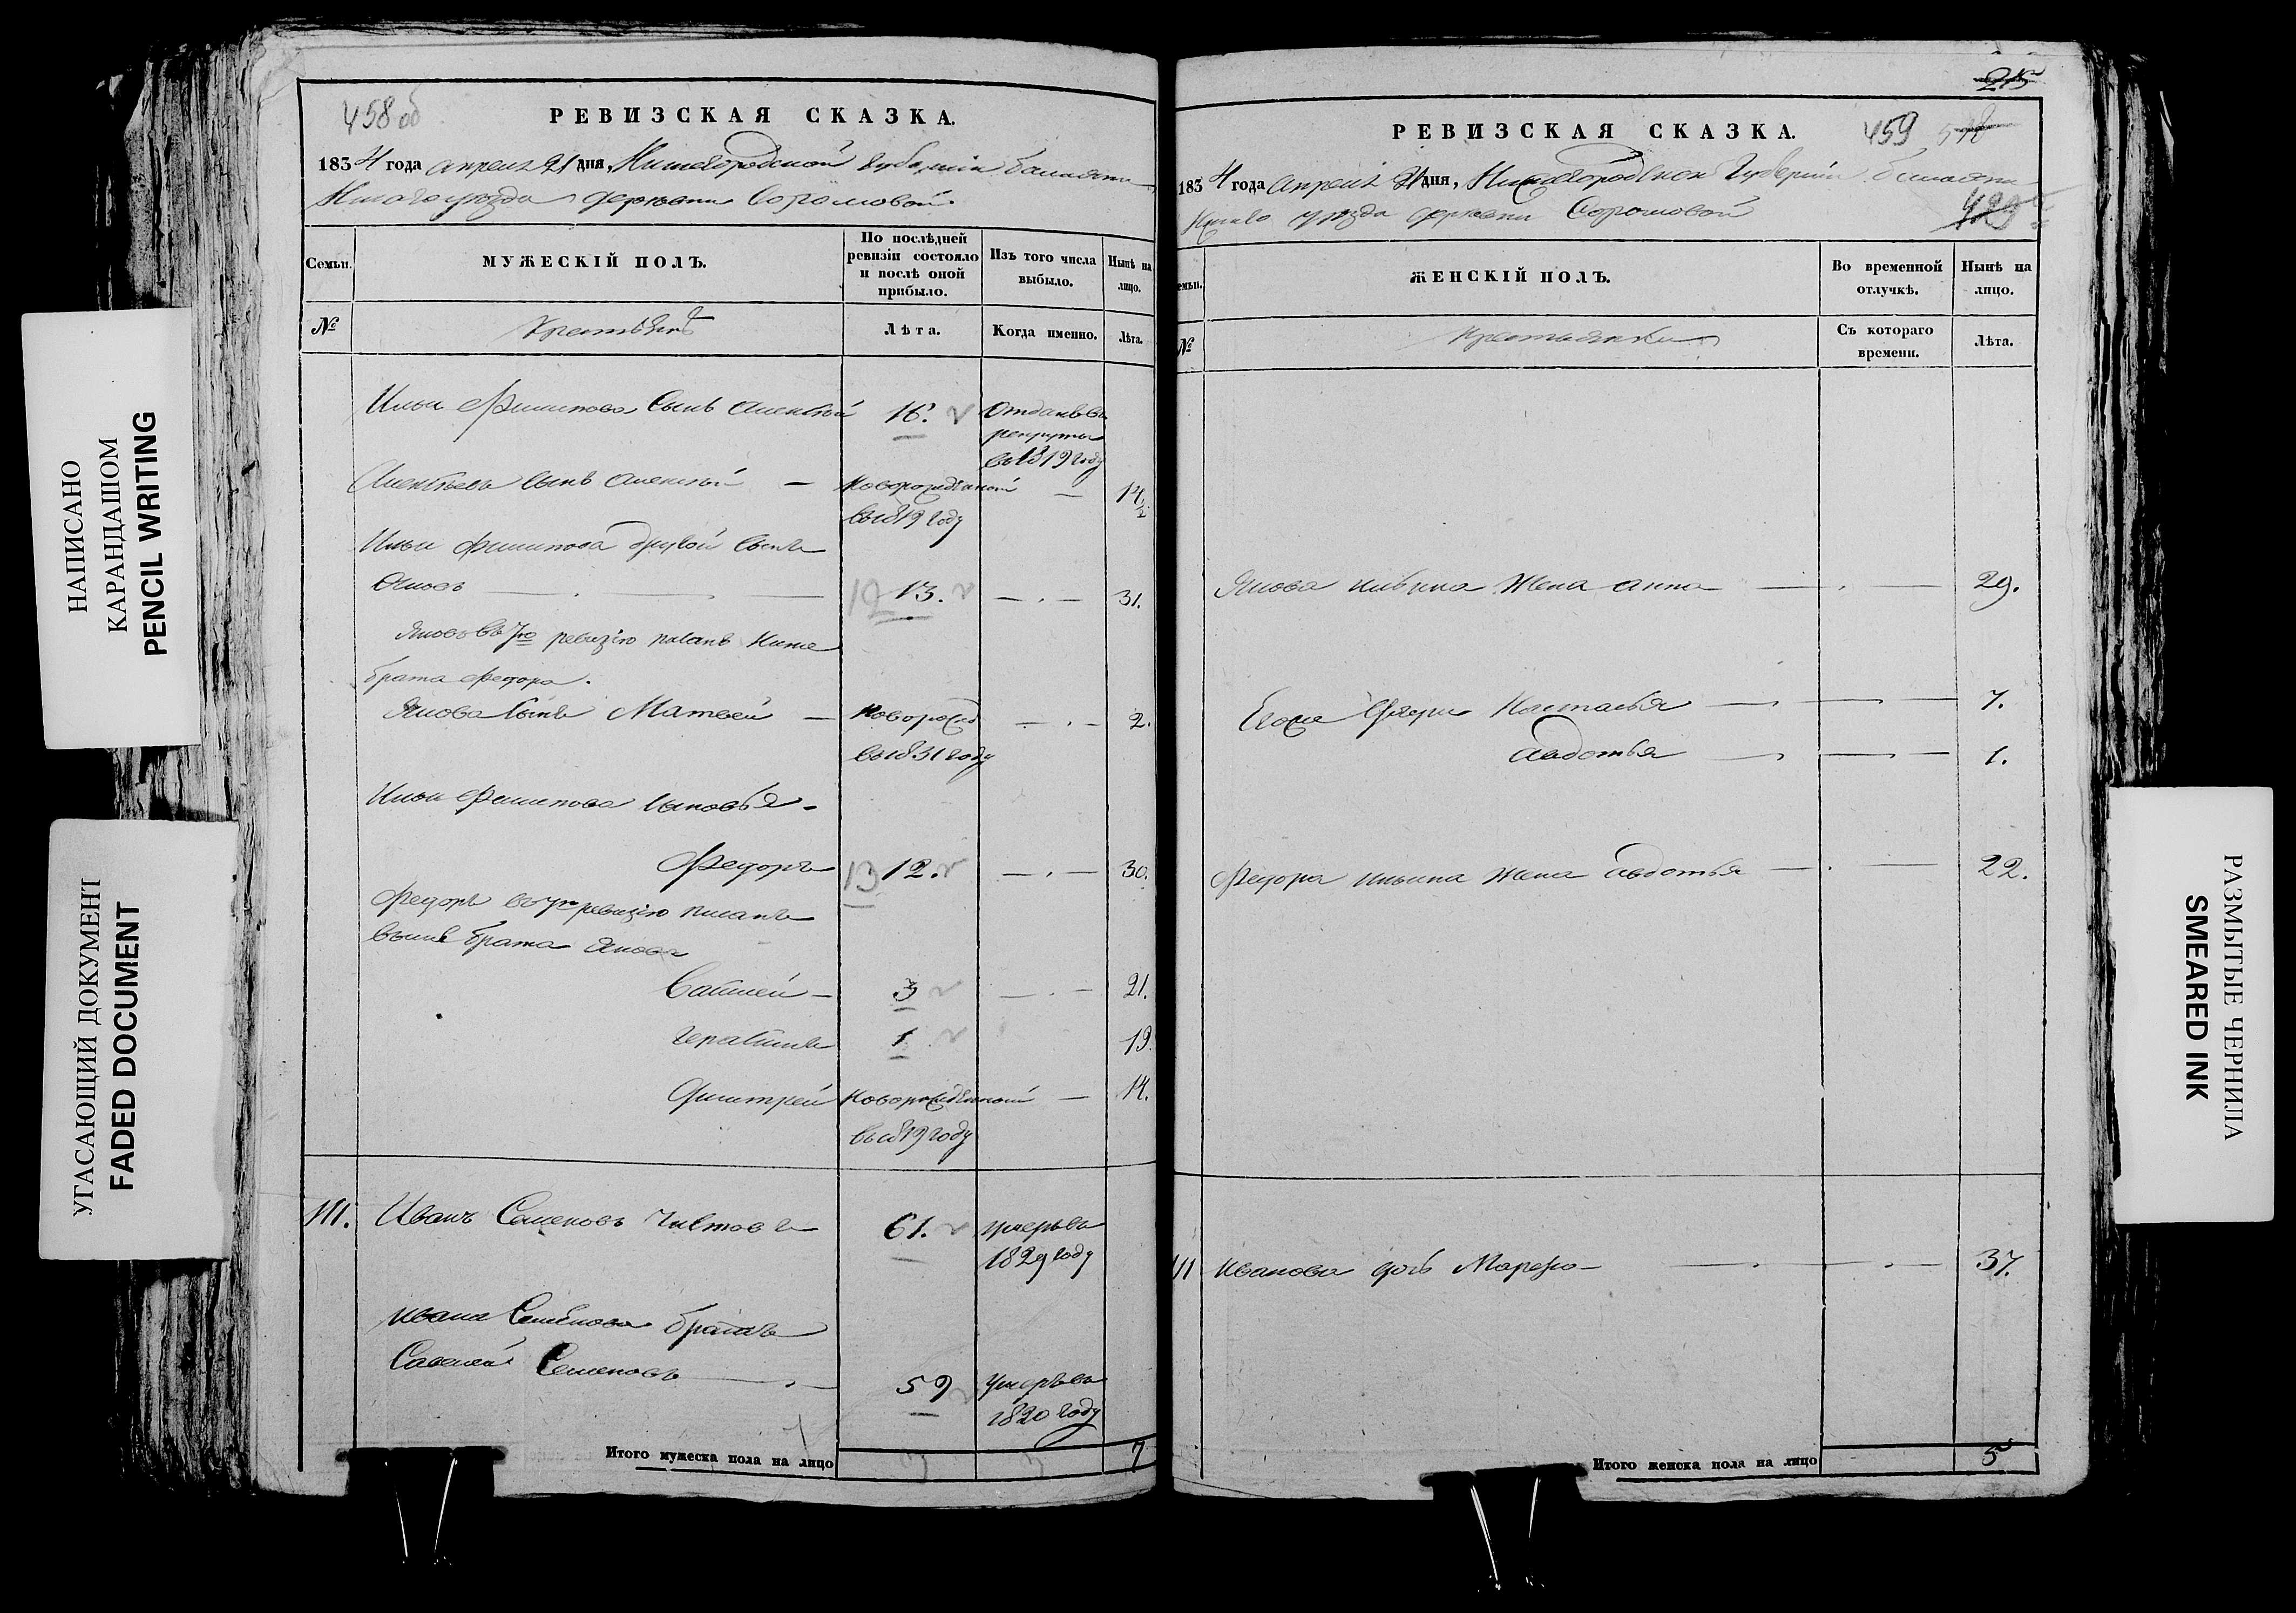 НАПИСАНО
КАРАНДАШОМ
PENCIL WRITING
УГАСАЮЩИЙ ДОКУМЕНТ
FADED DOCUMENT
458 об
РЕВИЗСКАЯ СКАЗКА.
1834 года апреля 21 дня, Нижегородской губернии балахни
нскаго уезда деревни
Семьи.
МУЖЕСКІЙ ПОЛЪ.
По послѣдней ревизіи состояло и послѣ оной прибыло.
Изъ того числа выбыло.
Нынѣ на лицо.
№
Крестьяне
Лѣта.
Когда именно.
Лѣта.
Ильи Филипова сынъ Алексѣй 16. Отданъ въ
рекруты
въ 1819 году
Алексѣевъ сынъ Алексѣй — новорожденной — 14 1/2
въ 1819 году
Ильи Филипова другой сынъ
Яковъ 12 13. — 31.
Яковъ въ 7ю ревизію писанъ ниже
брата Федора.
Якова сынъ Матвей — новорожд — 2.
въ 1831 году
Ильи Филипова сыновья.
Федоръ 13 12. — 30.
Федоръ въ 7ю ревизію писанъ
выше брата Якова
Василей — 3 — 21.
Герасимъ 1 19.
Дмитрей новорожденной — 14.
въ 1819 году
111. Иванъ Семеновъ 61. умеръ въ
1829 году
Ивана Семенова братъ
Савелей Семеновъ 59 умеръ въ
1820 году
Итого мужеска пола на лицо 7
25
РЕВИЗСКАЯ СКАЗКА.
459 518
1834 года апреля 21 дня, Нижегородской Губерніи балахни
нскаго уезда деревни
429
Семьи.
ЖЕНСКІЙ ПОЛЪ.
Во временной отлучкѣ.
Нынѣ на лицо.
№
Крестьянки
Съ котораго времени.
Лѣта.
Якова Ильина жена Анна — 29.
Егоже дочери Настасья — 7.
Авдотья — 1.
Федора Ильина жена Авдотья — 22.
111 Иванова дочь — 37.
Итого женска пола на лицо 5
РАЗМЫТЫЕ ЧЕРНИЛА
SMEARED INK